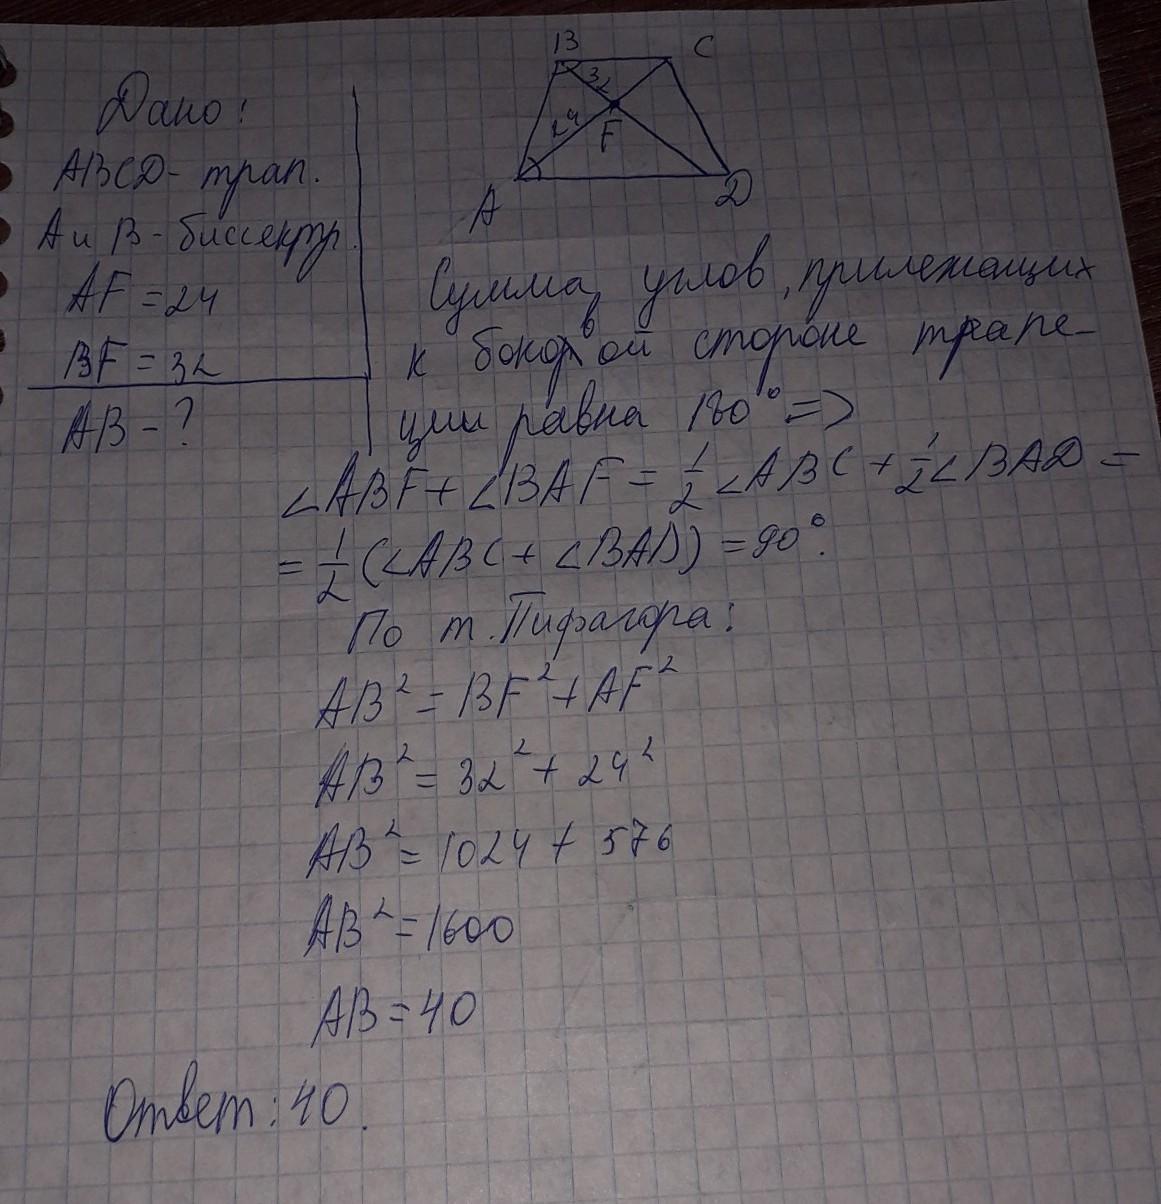 Дано:
ABCD - трап.
A и B - биссектр.
AF = 24
BF = 32
AB - ?
B C
32
24
F
A D
Сумма углов, прилежащих
к боковой стороне трапе-
ции равна 180° =>
∠ABF + ∠BAF = 1/2 ∠ABC + 1/2 ∠BAD =
= 1/2 (∠ABC + ∠BAD) = 90°.
По т. Пифагора:
AB² = BF² + AF²
AB² = 32² + 24²
AB² = 1024 + 576
AB² = 1600
AB = 40
Ответ: 40.